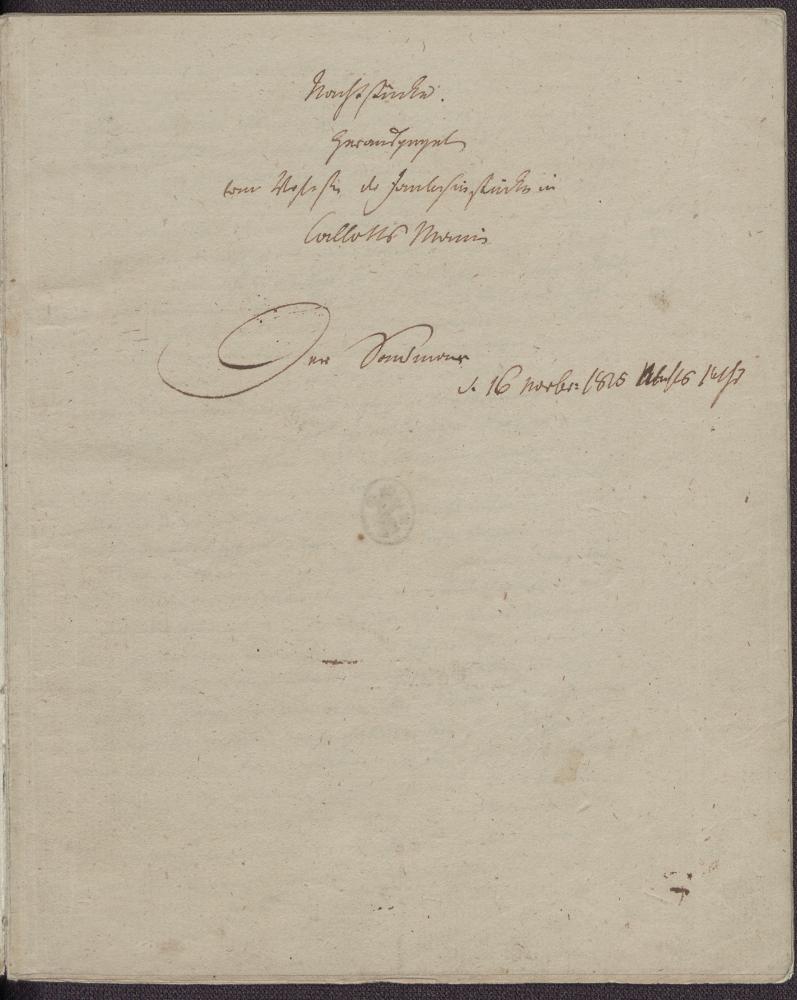 Nachtstücke.
Herausgegeben
vom Verfasser der Fantasiestücke in
Callotts Manier
Der Sandmann
d. 16 Novbr: 1815 Nachts 1 Uhr